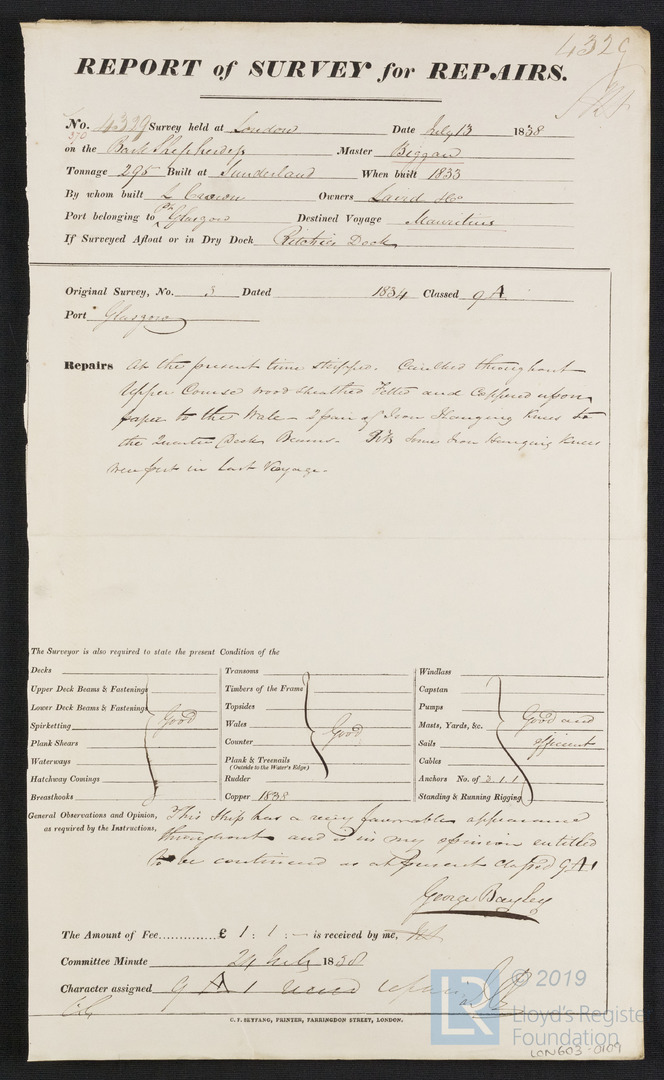 4329
REPORT of SURVEY for REPAIRS.
No. 4329 Survey held at London Date July 13 1838
370
on the Bark Shepherdess Master Biggar
Tonnage 295 Built at Sunderland When built 1833
By whom built L Crown Owners Laird &Co
Port belonging to Glasgow Destined Voyage Mauritius
If Surveyed Afloat or in Dry Dock Ritchies Dock
Original Survey, No. 3 Dated 1834 Classed 9 A
Port Glasgow
Repairs At the present time stripped. Caulked throughout
Upper Course wood sheathed Felted and Coppered upon
paper to the Wale - 2 pair of Iron Hanging Knees to
the Quarter Deck Beams - Some Iron Hanging Knees
were put in last Voyage.
The Surveyor is also required to state the present Condition of the
Decks
Upper Deck Beams & Fastenings
Lower Deck Beams & Fastenings
Spirketting Good
Plank Shears
Waterways
Hatchway Comings
Breasthooks
Transoms
Timbers of the Frame
Topsides
Wales Good
Counter
Plank & Treenails
(Outside to the Water's Edge)
Rudder
Copper 1838
Windlass
Capstan
Pumps
Masts, Yards, &c. Good and
Sails efficient
Cables
Anchors No. of 2.1.1
Standing & Running Rigging
General Observations and Opinion, This Ship has a very favorable appearance
as required by the Instructions, throughout and is in my opinion entitled
to be continued as at present classed 9 A 1
George Bayley
The Amount of Fee.............. £ 1 : 1 : - is received by me,
Committee Minute 24 July 1838
Character assigned 9 A 1
C. F. SEYFANG, PRINTER, FARRINGDON STREET, LONDON.
LR © 2019
Lloyd's Register
Foundation
LON603-0109